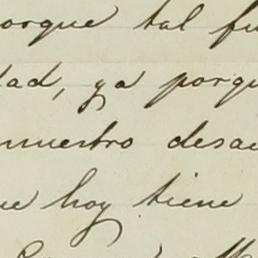 porque tal fu
dad, ya porqu
nuestro desa
ue hoy tiene